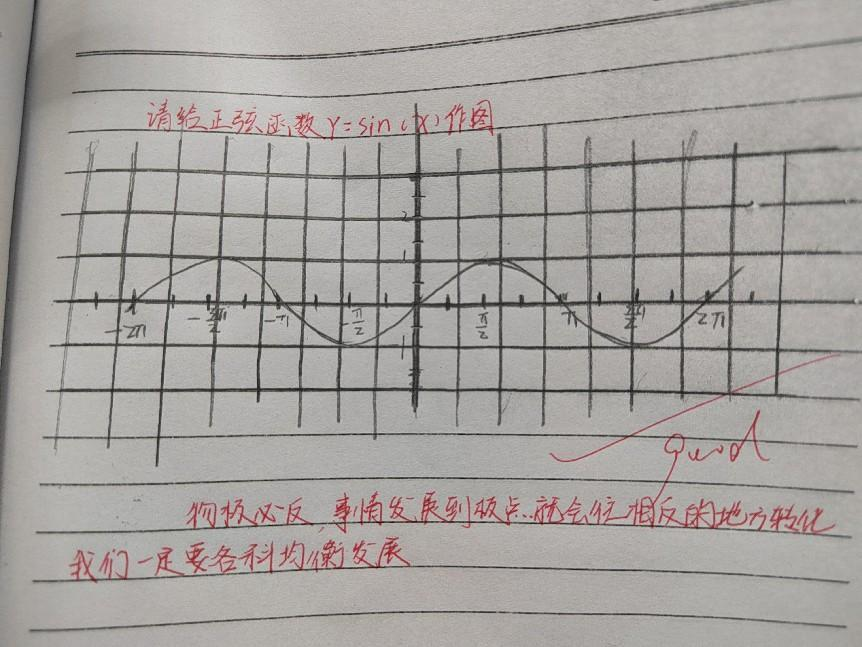 请给正弦函数Y=sin(X)作图
2
1
-2π -3π/2 -π -π/2 π/2 π 3π/2 2π
1
good
物极必反,事情发展到极点..就会往相反的地方转化
我们一定要各科均衡发展